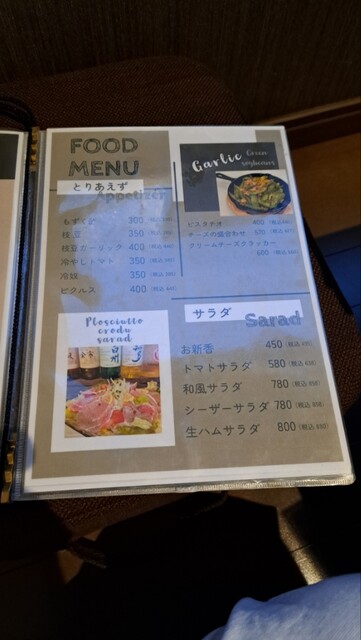 FOOD
MENU
とりあえず
Appetizer
もずく酢 300
枝豆 350
枝豆ガーリック 400
冷やしトマト 350
冷奴 350
ピクルス 400
Garlic Green
soybeans
ピスタチオ 400
チーズの盛合わせ 570
クリームチーズクラッカー
600
サラダ
Sarad
お新香 450
トマトサラダ 580
和風サラダ 780
シーザーサラダ 780 (税込 858)
生ハムサラダ 800 (税込 880)
Plosciutto
crodu
sarad